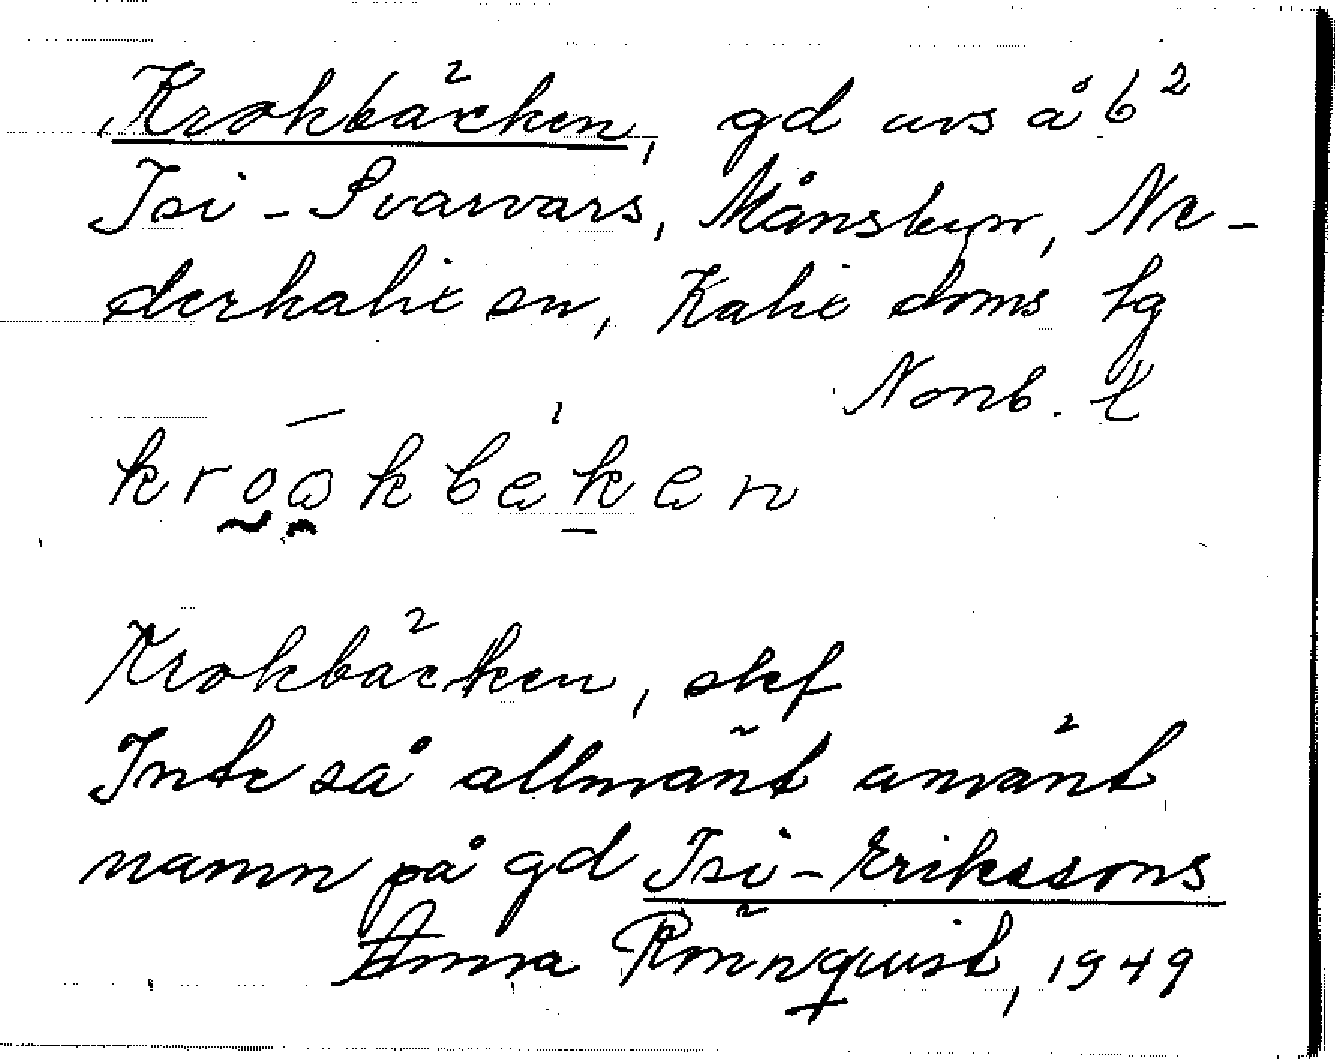 Krokbäcken, gd avs å b²
Isi-Svarvars, Månsbyn, Ne-
derkalix sn, Kalix doms tg
Norrb. l
kroakbäken
Krokbäcken, skf
Inte så allmänt använt
namn på gd Isi-Erikssons
Anna Rönnquist, 1949